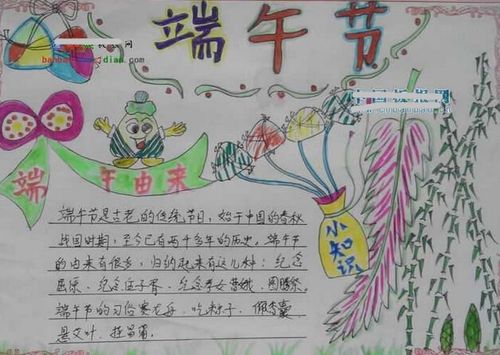 端午节
端午由来
端午节是古老的传统节日，始于中国的春秋
战国时期，至今已有两千多年的历史。端午节
的由来有很多，归纳起来有这几种：纪念
屈原，纪念伍子胥，纪念孝女曹娥，图腾祭。
端午节的习俗赛龙舟，吃粽子，佩香囊
悬艾叶，挂菖蒲。
小知识